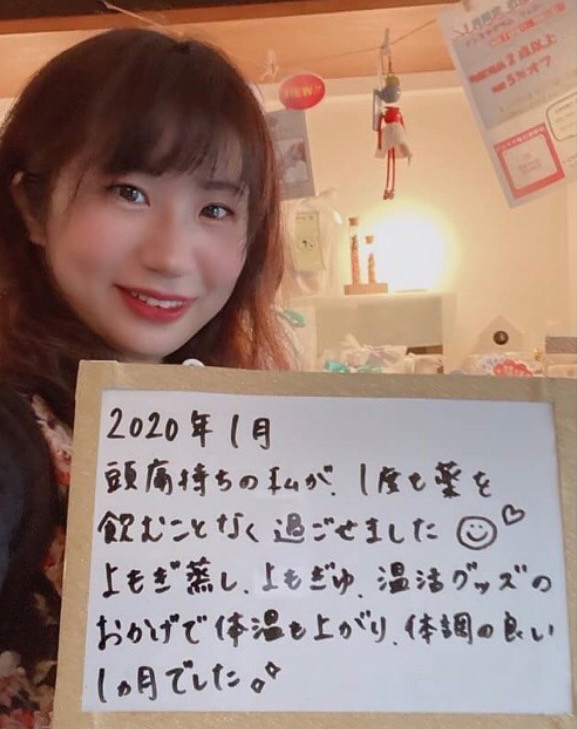 NEW!!
2点以上
5%オフ
2020年1月
頭痛持ちの私が、1度も薬を
飲むことなく過ごせました
よもぎ蒸し、よもぎゆ、温活グッズの
おかげで体温も上がり、体調の良い
1ヵ月でした